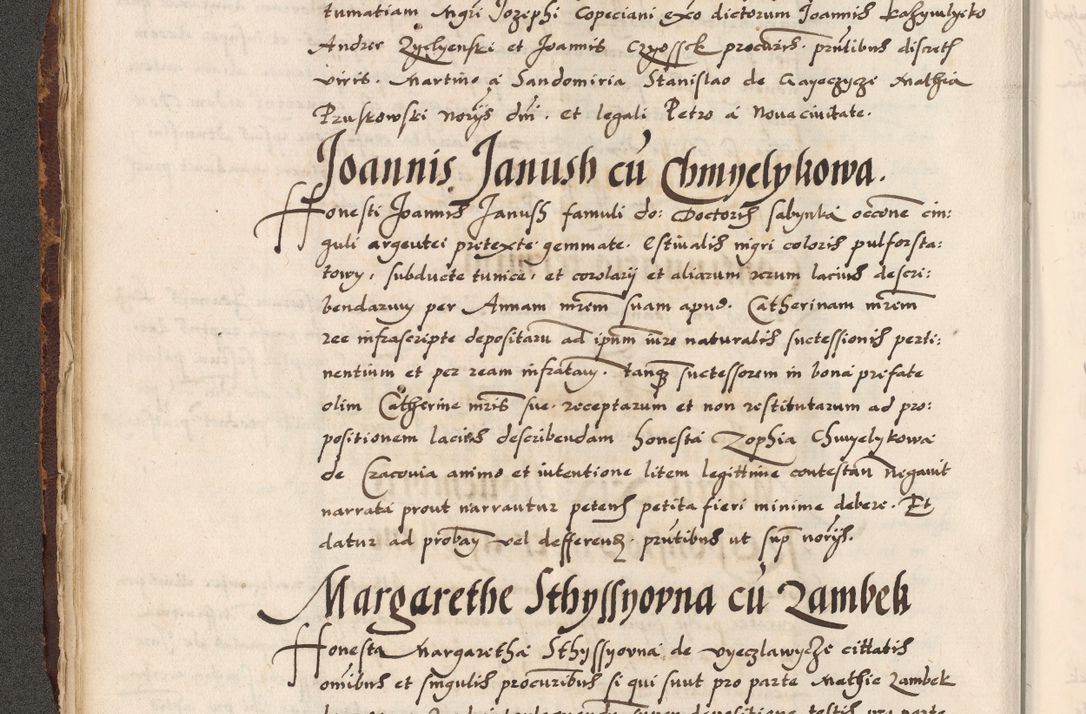 tumatiam Mgri Jozephi Copeciani ex̄o dictorum Joannis
Andree Zyclyenski et Joannis Czyossek procūris. prn̄tibus discretis
viris. Martino á Sandomiria Stanislao de Gayeczyczi Mathia
Pruskowski norijs dni. et legali Petro á Novacivitate.
Joannis Janush cū Chmyelykowa.
Honesti Joannis Janush famuli do: Doctoris Sabynka occōne cin:
guli argentei pretexte gemmate. Estivalis nigri coloris pulforsta:
towy, subducte tunice, et corolarij et aliarum rerum lacius descri:
bendarum per Annam mr̄em suam apud. Catherinam mr̄em
ree infrascripte depositarū ad ipūm iure naturalis successionis perti:
nentium et per ream infratam. tanqz successorem in bona prefate
olim Catherine mr̄is sue. receptarum et non restitutarum ad pro:
positionem lacius describendam honesta Zophia Chmyelykowa
de Cracovia animo et intentione litem legittime contestan̄ Negavit
narrata prout narrantur petens petita fieri minime debere. Et
datur ad proban̄ vel defferend. prn̄tibus ut sup̄ norijs.
Margarethe Sthyssyovna cū Zambek
Honesta Margaretha Sthyssyovna de Vyeczlawycze citatis
omībus et singulis procūribus si qui sunt pro parte Mathie Zambek